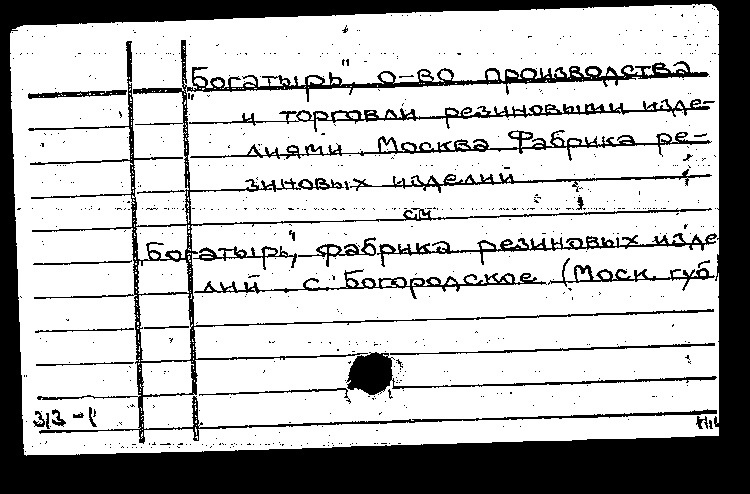 "Богатырь", о-во производства
и торговли резиновыми изде-
лиями. Москва. Фабрика ре-
зиновых изделий
см.
"Богатырь", фабрика резиновых изде
лий. с. Богородское (Моск. губ